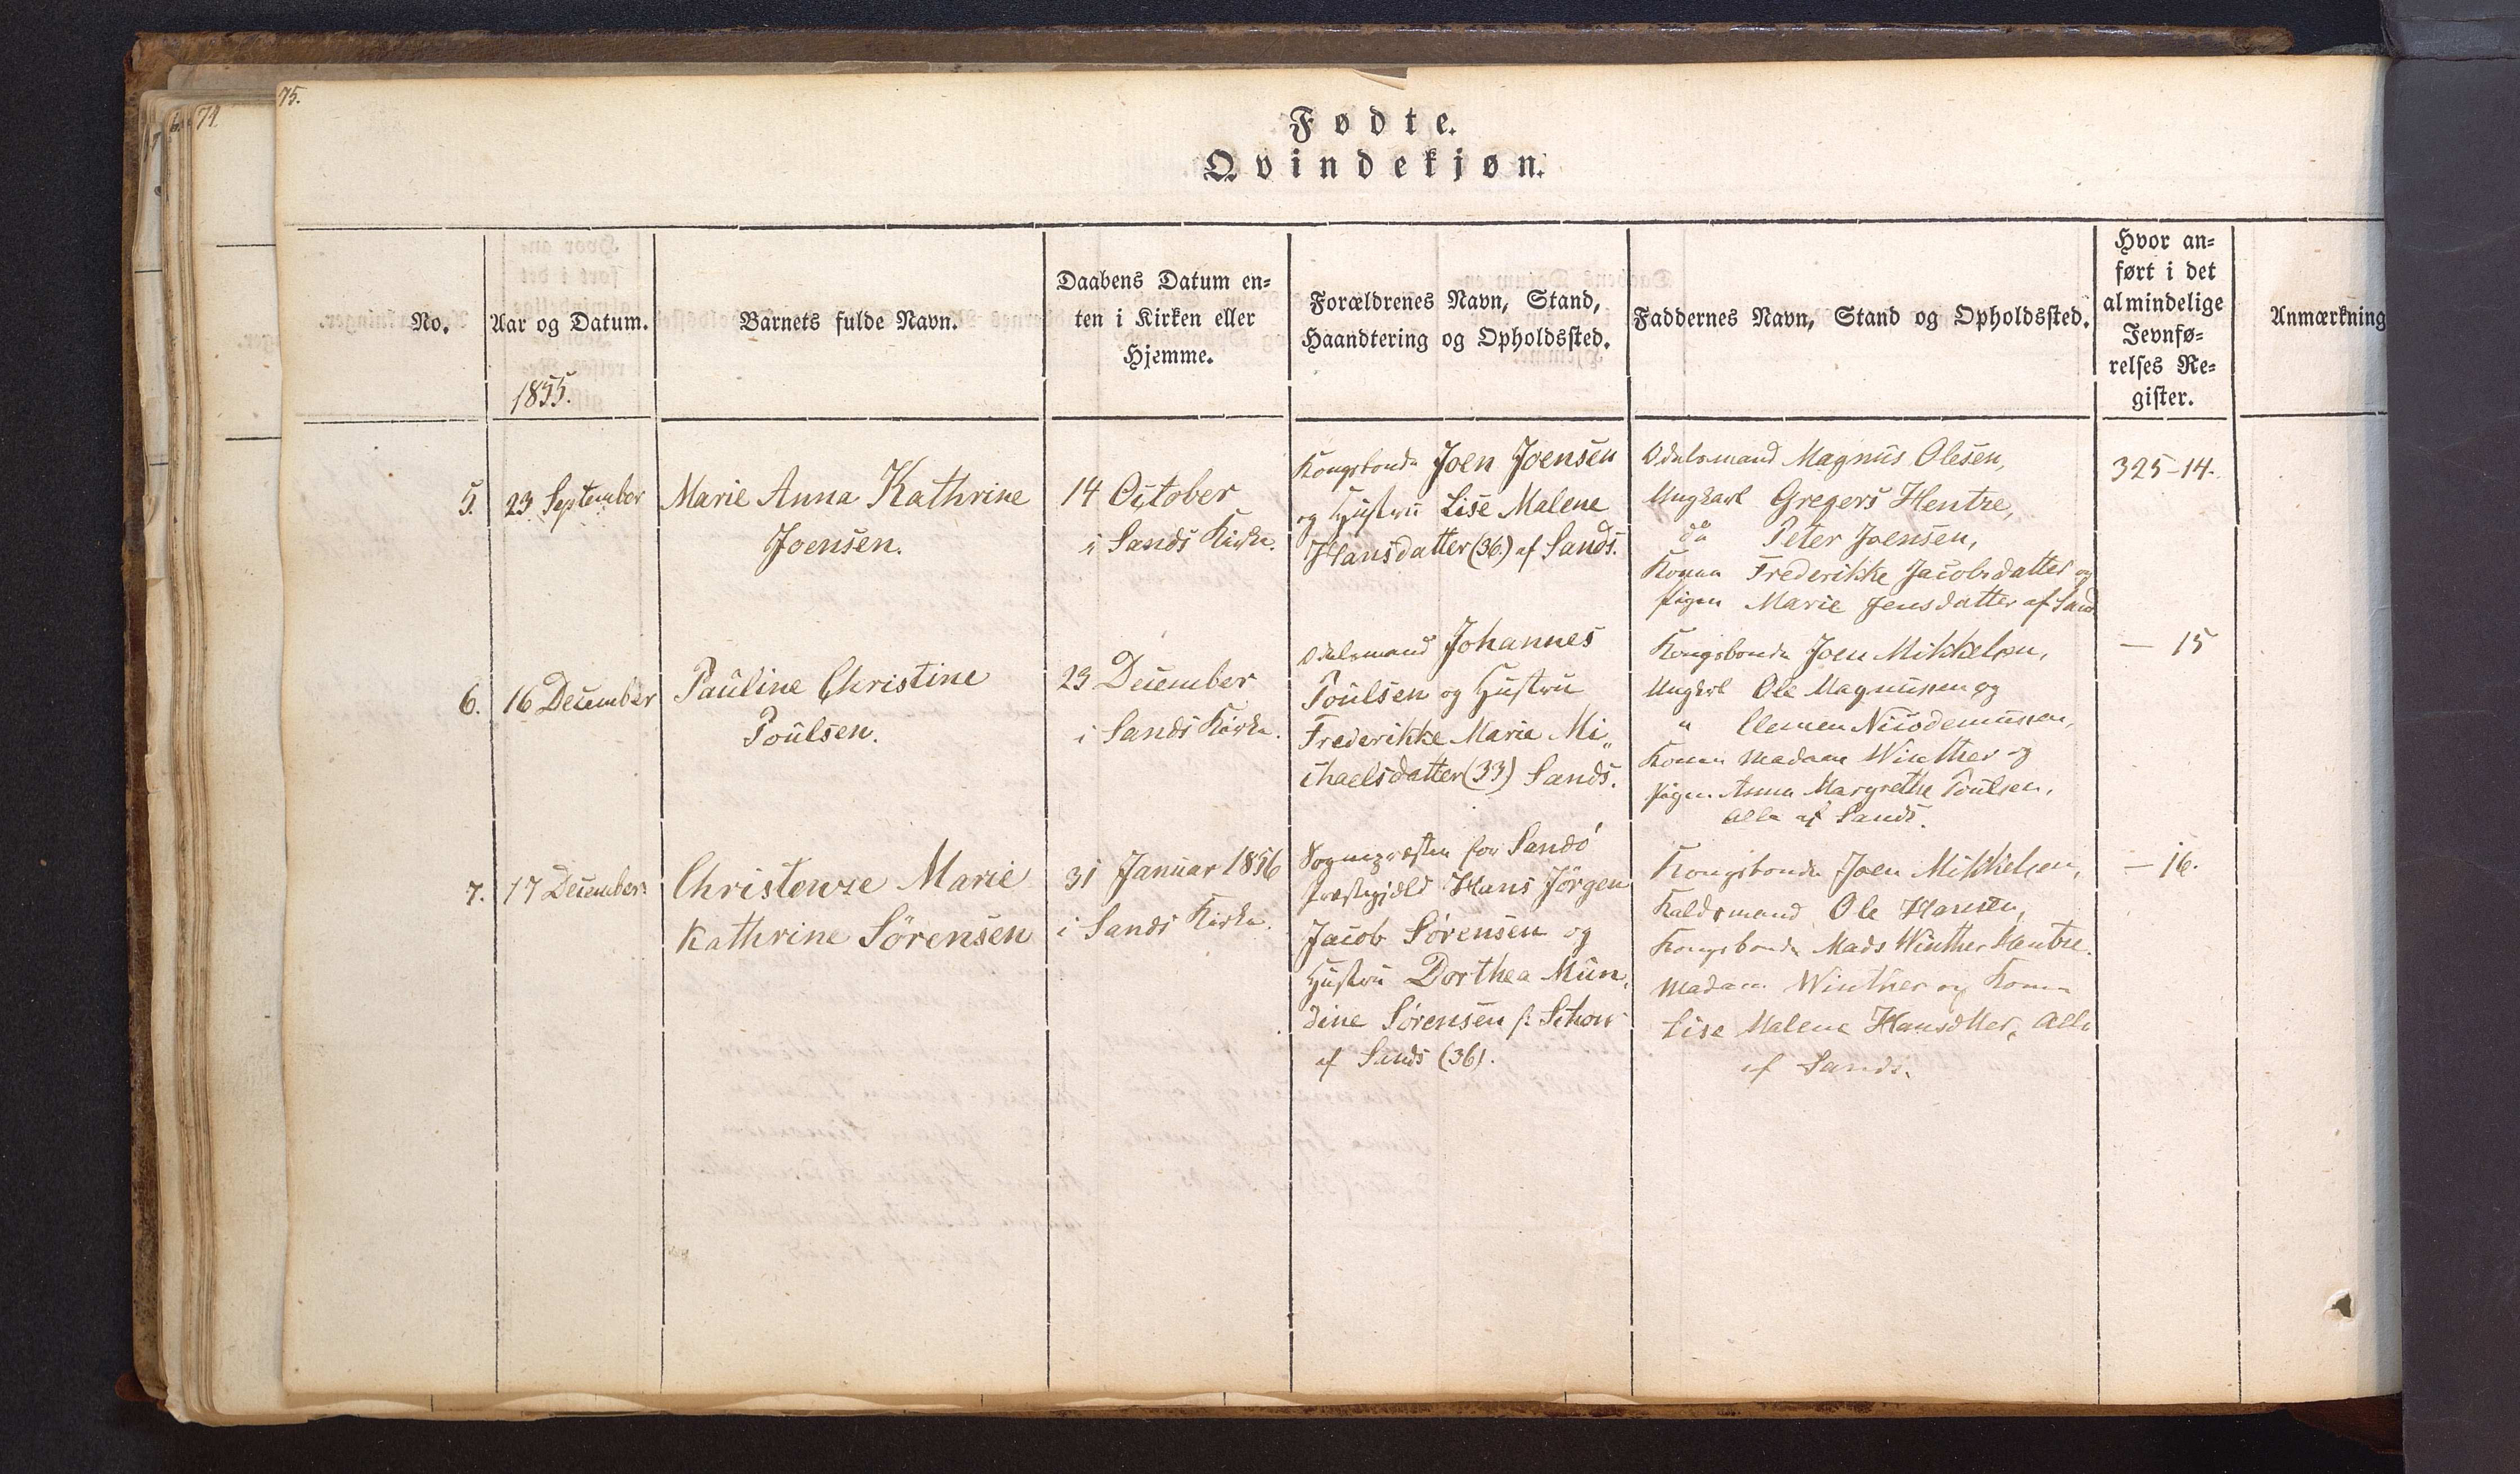 74
75.
Fødte.
Qvindekjøn.
No.
Aar og Datum.
1855.
Barnets fulde Navn.
Daabens Datum en-
ten i Kirken eller
Hjemme.
Forældrenes Navn, Stand,
Haandtering og Opholdssted.
Faddernes Navn, Stand og Opholdssted.
Hvor an-
ført i det
almindelige
Jevnfø-
relses Re-
gister.
Anmærkning
5.
23 September
Marie Anna Kathrine
Joensen.
14 October
i Sands Kirke.
Kongsbonde Joen Joensen
og Hustru Lise Malene
Hansdatter (36.) af Sands.
Odelsmand Magnus Olesen,
Ungkarl Gregers Hentze,
do Peter Joensen,
Konen Frederikke Jacobsdatter og
Pigen Marie Jensdatter af Sand
325-14.
6.
16 December
Pauline Christine
Poulsen.
23 December
i Sands Kirke.
Odelsmand Johannes
Poulsen og Hustru
Frederikke Marie Mi„
chaelsdatter (33) Sands.
Kongsbonde Joen Mikkelsen,
Ungkarl Ole Magnussen og
" Clemen Nicodemussen,
Konen Madam Winther og
Pigen Anna Margrethe Poulsen,
Alle af Sands.
— 15
7.
17 December
Christenze Marie
Kathrine Sørensen
31 Januar 1856
i Sands Kirke.
Sognepræsten for Sandø
Præstegjeld Hans Jörgen
Jacob Sørensen og
Hustru Dorthea Mun„
dine Sørensen f.
af Sands (36).
Kongsbonde Joen Mikkelsen,
Kaldsmand Ole Hansen,
Kongsbonde Mads Winther Hentze.
Madam Winther og Konen
Lise Malene Hansdtter, Alle
af Sands.
— 16.